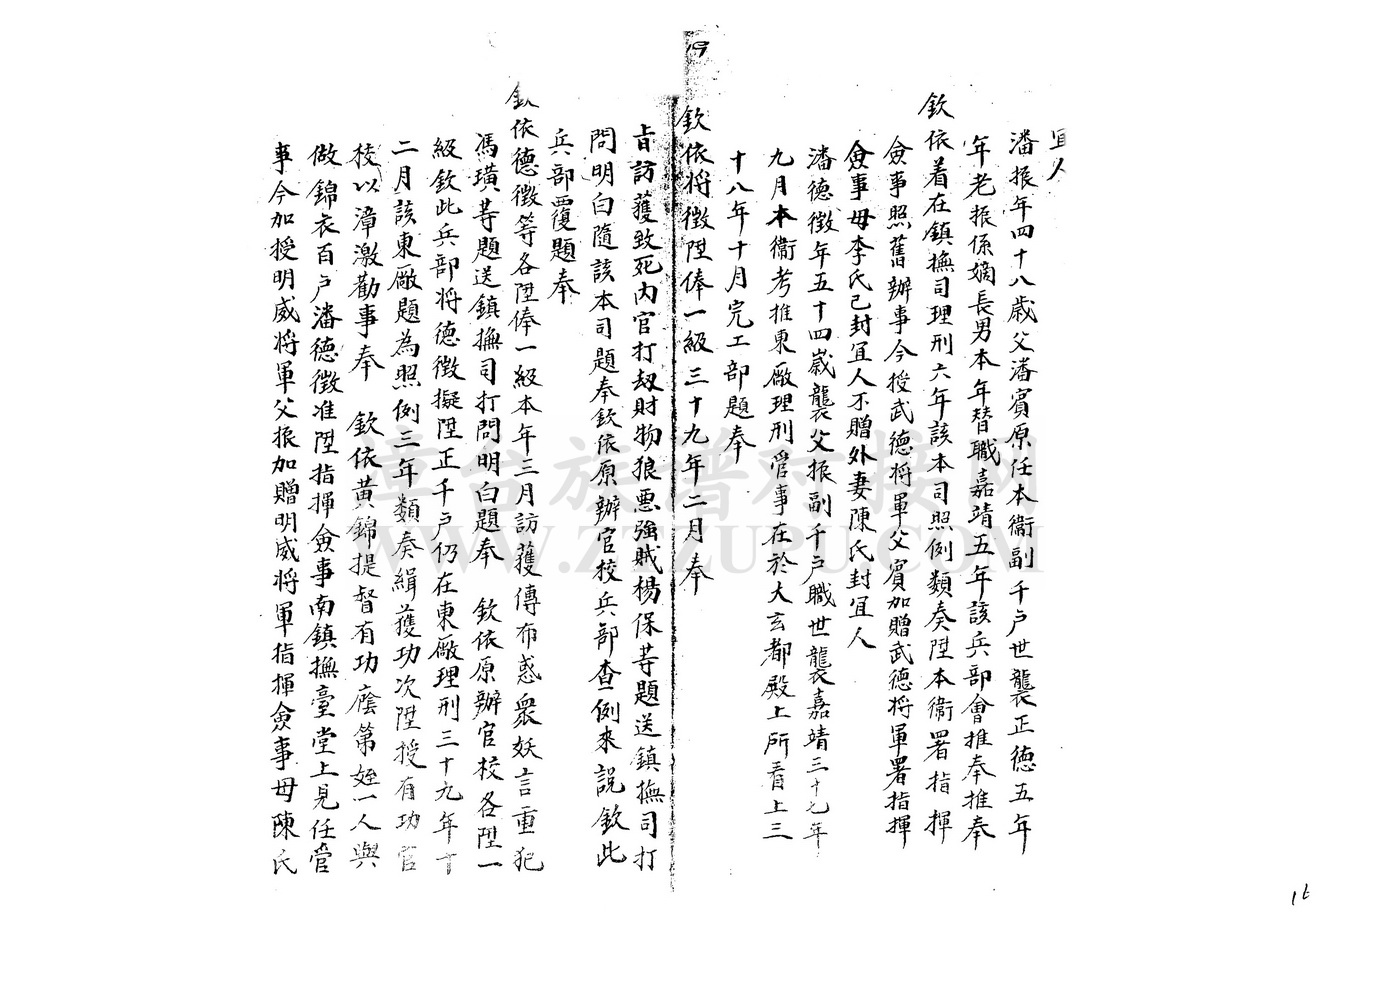 宜人
潘振年四十八歲父潘賓原任本衞副千戶世襲正德五年
年老振係嫡長男本年替職嘉靖五年該兵部會推奉推奉
欽依着在鎮撫司理刑六年該本司照例類奏陞本衞署指揮
僉事照舊辦事今授武德将軍父賓加贈武德将軍署指揮
僉事母李氏已封宜人不贈外妻陳氏封宜人
潘德徵年五十四歲襲父振副千戶職世襲嘉靖三十七年
九月本衞考推東廠理刑管事在於大玄都殿上所看上三
十八年十月完工部題奉
欽依将徵陞俸一級三十九年二月奉
旨訪獲致死內官打刼財物狼悪強賊楊保等題送鎮撫司打
問明白隨該本司題奉欽依原辦官校兵部查例來說欽此
兵部覆題奉
欽依德徵等各陞俸一級本年三月訪獲傳布惑衆妖言重犯
馮璜等題送鎮撫司打問明白題奉 欽依原辦官校各陞一
級欽此兵部将德徵擬陞正千戶仍在東廠理刑三十九年十
二月該東廠題為照例三年類奏緝獲功次陞授有功官
校以漳激勸事奉 欽依黄錦提督有功廕第姪一人與
做錦衣百戶潘德徵准陞指揮僉事南鎮撫臺堂上見任管
事今加授明威将軍父振加贈明威将軍指揮僉事母陳氏
19
樟台族譜对接网
WWW.ZTZUPU.COM